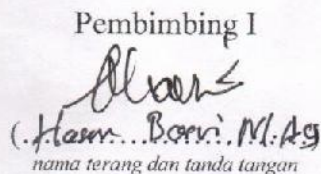 Pembimbing I
(.Hasan...Basri.M.Ag
nama terang dan tanda tangan